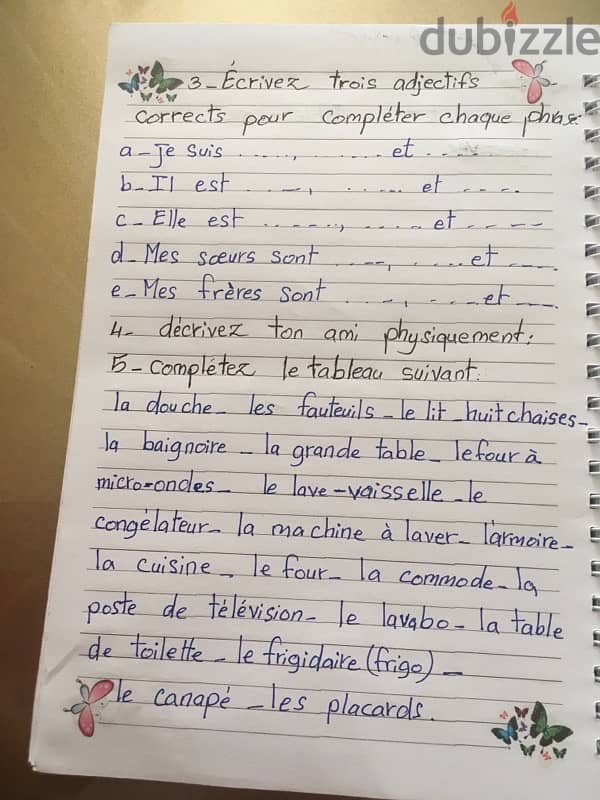 dubizzle
3-Écrivez trois adjectifs
corrects pour compléter chaque phrase:
a-Je suis ....., ...... et .....
b-Il est ....., ...... et ....
c-Elle est ....., ..... et ----
d-Mes sœurs sont ...--, ..... et ----.
e-Mes frères sont ...-., ..-- et ---.
4- décrivez ton ami physiquement:
5-Complétez le tableau suivant:
la douche- les fauteuils-le lit-huit chaises-
la baignoire - la grande table- le four à
micro-ondes- le lave-vaisselle-le
congélateur- la machine à laver- l'armoire-
la cuisine- le four- la commode- la
poste de télévision- le lavabo- la table
de toilette- le frigidaire (frigo)-
le canapé-les placards.